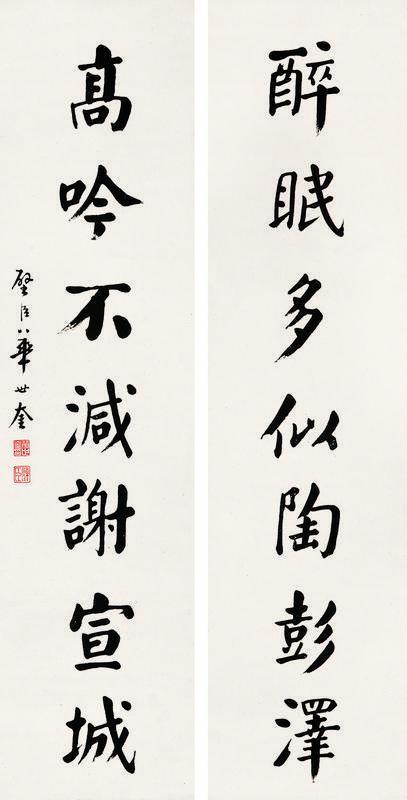 醉眠多似陶彭澤
高吟不減謝宣城
璧臣華世奎